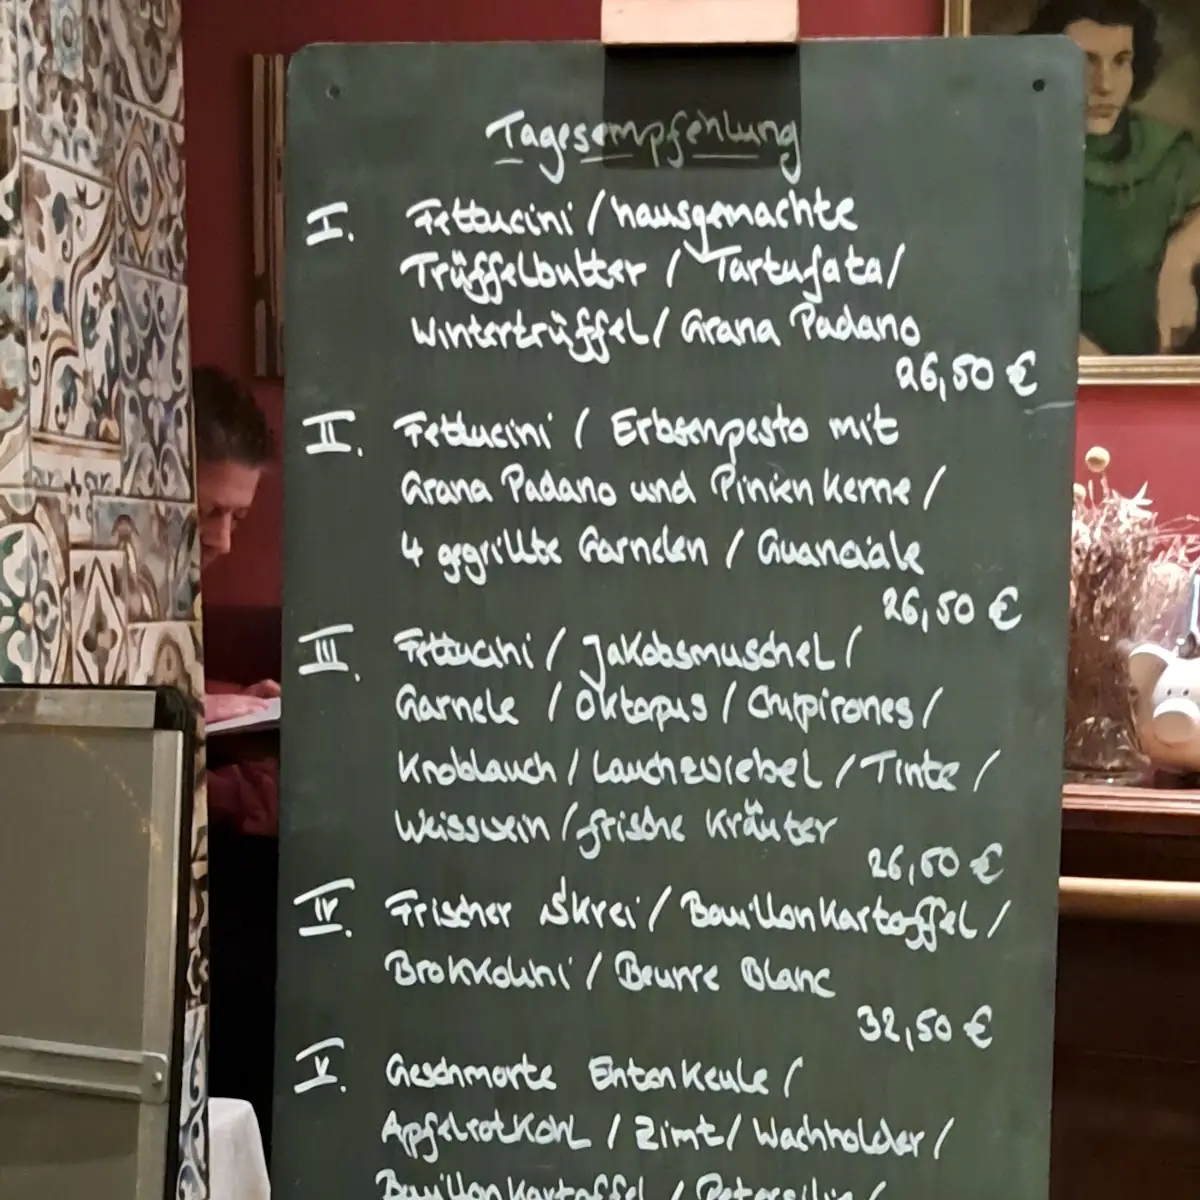 Tagesempfehlung
I. Fettucini / hausgemachte
Trüffelbutter / Tartufata /
Wintertrüffel / Grana Padano
26,50 €
II. Fettucini / Erbsenpesto mit
Grana Padano und Pinienkerne /
4 gegrillte Garnelen / Guanciale
26,50 €
III. Fettucini / Jakobsmuschel /
Garnele / Oktopus / Chipirones /
Knoblauch / Lauchzwiebel / Tinte /
Weisswein / frische Kräuter
26,50 €
IV. Frischer Skrei / Bouillonkartoffel /
Brokkolini / Beurre Blanc
32,50 €
V. Geschmorte Entenkeule /
Apfelrotkohl / Zimt / Wachholder /
Bouillonkartoffel / Petersilie /